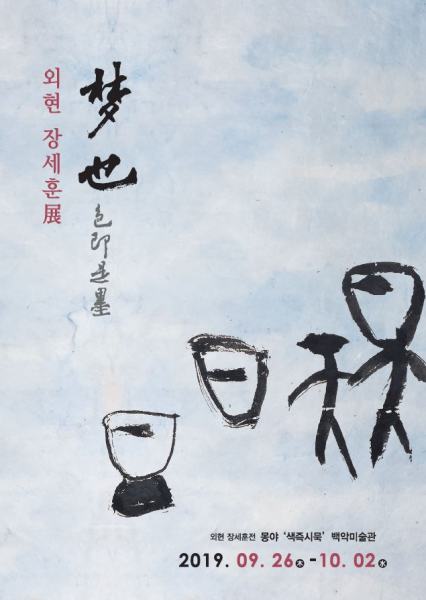 외현 장세훈展
梦也
色即是墨
외현 장세훈전 몽야 '색즉시묵' 백악미술관
2019. 09. 26木 - 10. 02水